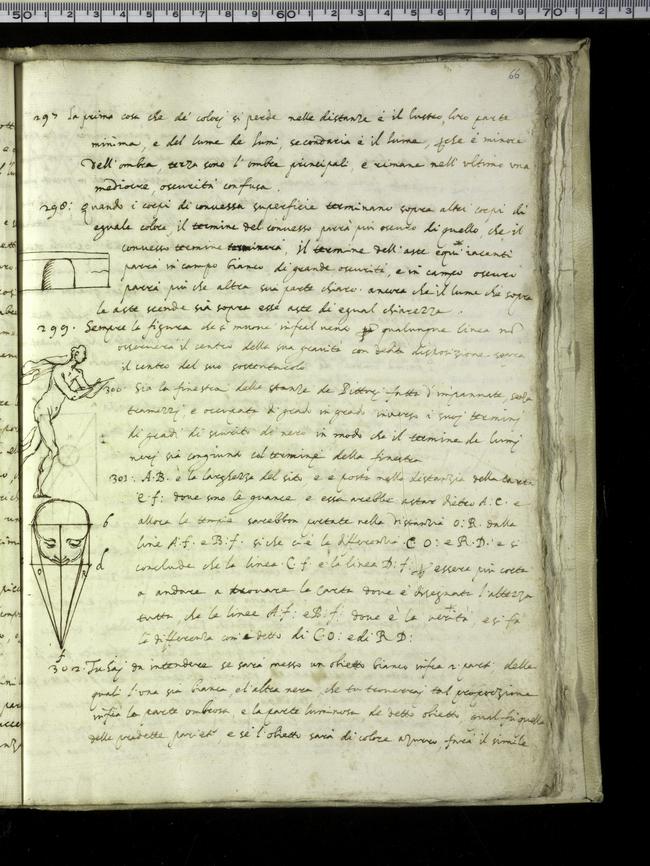 66
297 La prima cosa che de' colorj si perde nelle distanze è il lustro, loro parte
minima, e del lume de lumi, secondaria è il lume, perche è minore
dell'ombra, terza sono l'ombre principali, e rimane nell'ultimo una
mediocre, oscurità confusa.
298: Quando i corpi di convessa superficie terminano sopra altri corpi di
eguale colore, il termine del convesso parrà più oscuro di quello, che il
convesso termine terminerà, il termine dell'aste equi iacenti
parrà in campo bianco di grande oscurità, e in campo oscuro
parrà più che altra sua parte chiaro. ancora che il lume che sopra
le aste scende sia sopra esse aste di egual chiarezza.
299. Sempre la figura che si muove infra'l vento per qualunque linea non
osserverà il centro della sua gravità con debita disposizione sopra
il centro del suo sostentacolo
300 Sia la finestra delle stanze de Pittorj fatta d'impannate, senza
tramezzj, e occupata di grado in grado inverso i suoj terminj
di gradi di scurito di nero in modo che il termine de lumi
non sia congiunto col termine della finestra
301: A.B. è la larghezza del sito e è posta nella distanzia della carta
C f: dove sono le guance e essa arebbe a star dietro A.C. e
allora le tempie sarebbon portate nella distanzia O:R. dalle
linee A.f: e B:f. si che ci è la differenzia C O: e R.D. e si
conclude che la linea C f e la linea D:f. essere più corta
a andare a trovare la carta dove è disegnata l'altezza
tutta, che le linee A f: e B:f: dove è la verità e si fa
la differenza com'è detto di C O: e di R D:
302 Tu hai da intendere se sarà messo un obietto bianco infra 2 pareti delle
quali l'una sia bianca, et l'altra nera, che tu troverrai tal proporzione
infra la parte ombrosa, e la parte luminosa de detto obietto, qual fia quella
delle predette pareti e se l'obietto sarà di colore azurro, farà il simile
b
d
o
r
f